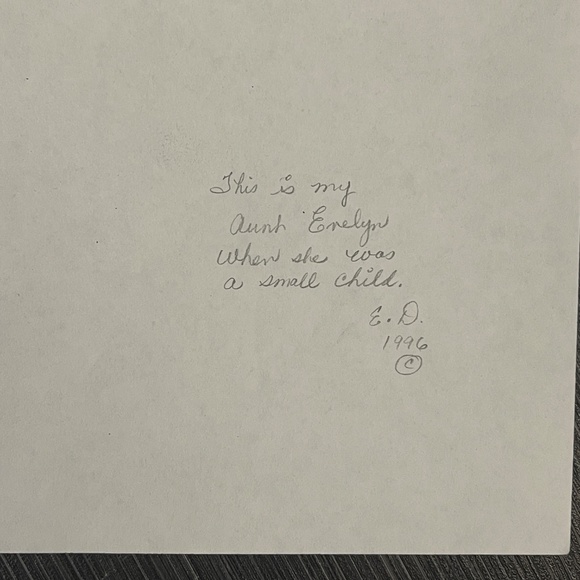 This is my
Aunt Evelyn
when she was
a small child.
E. D.
1996
©